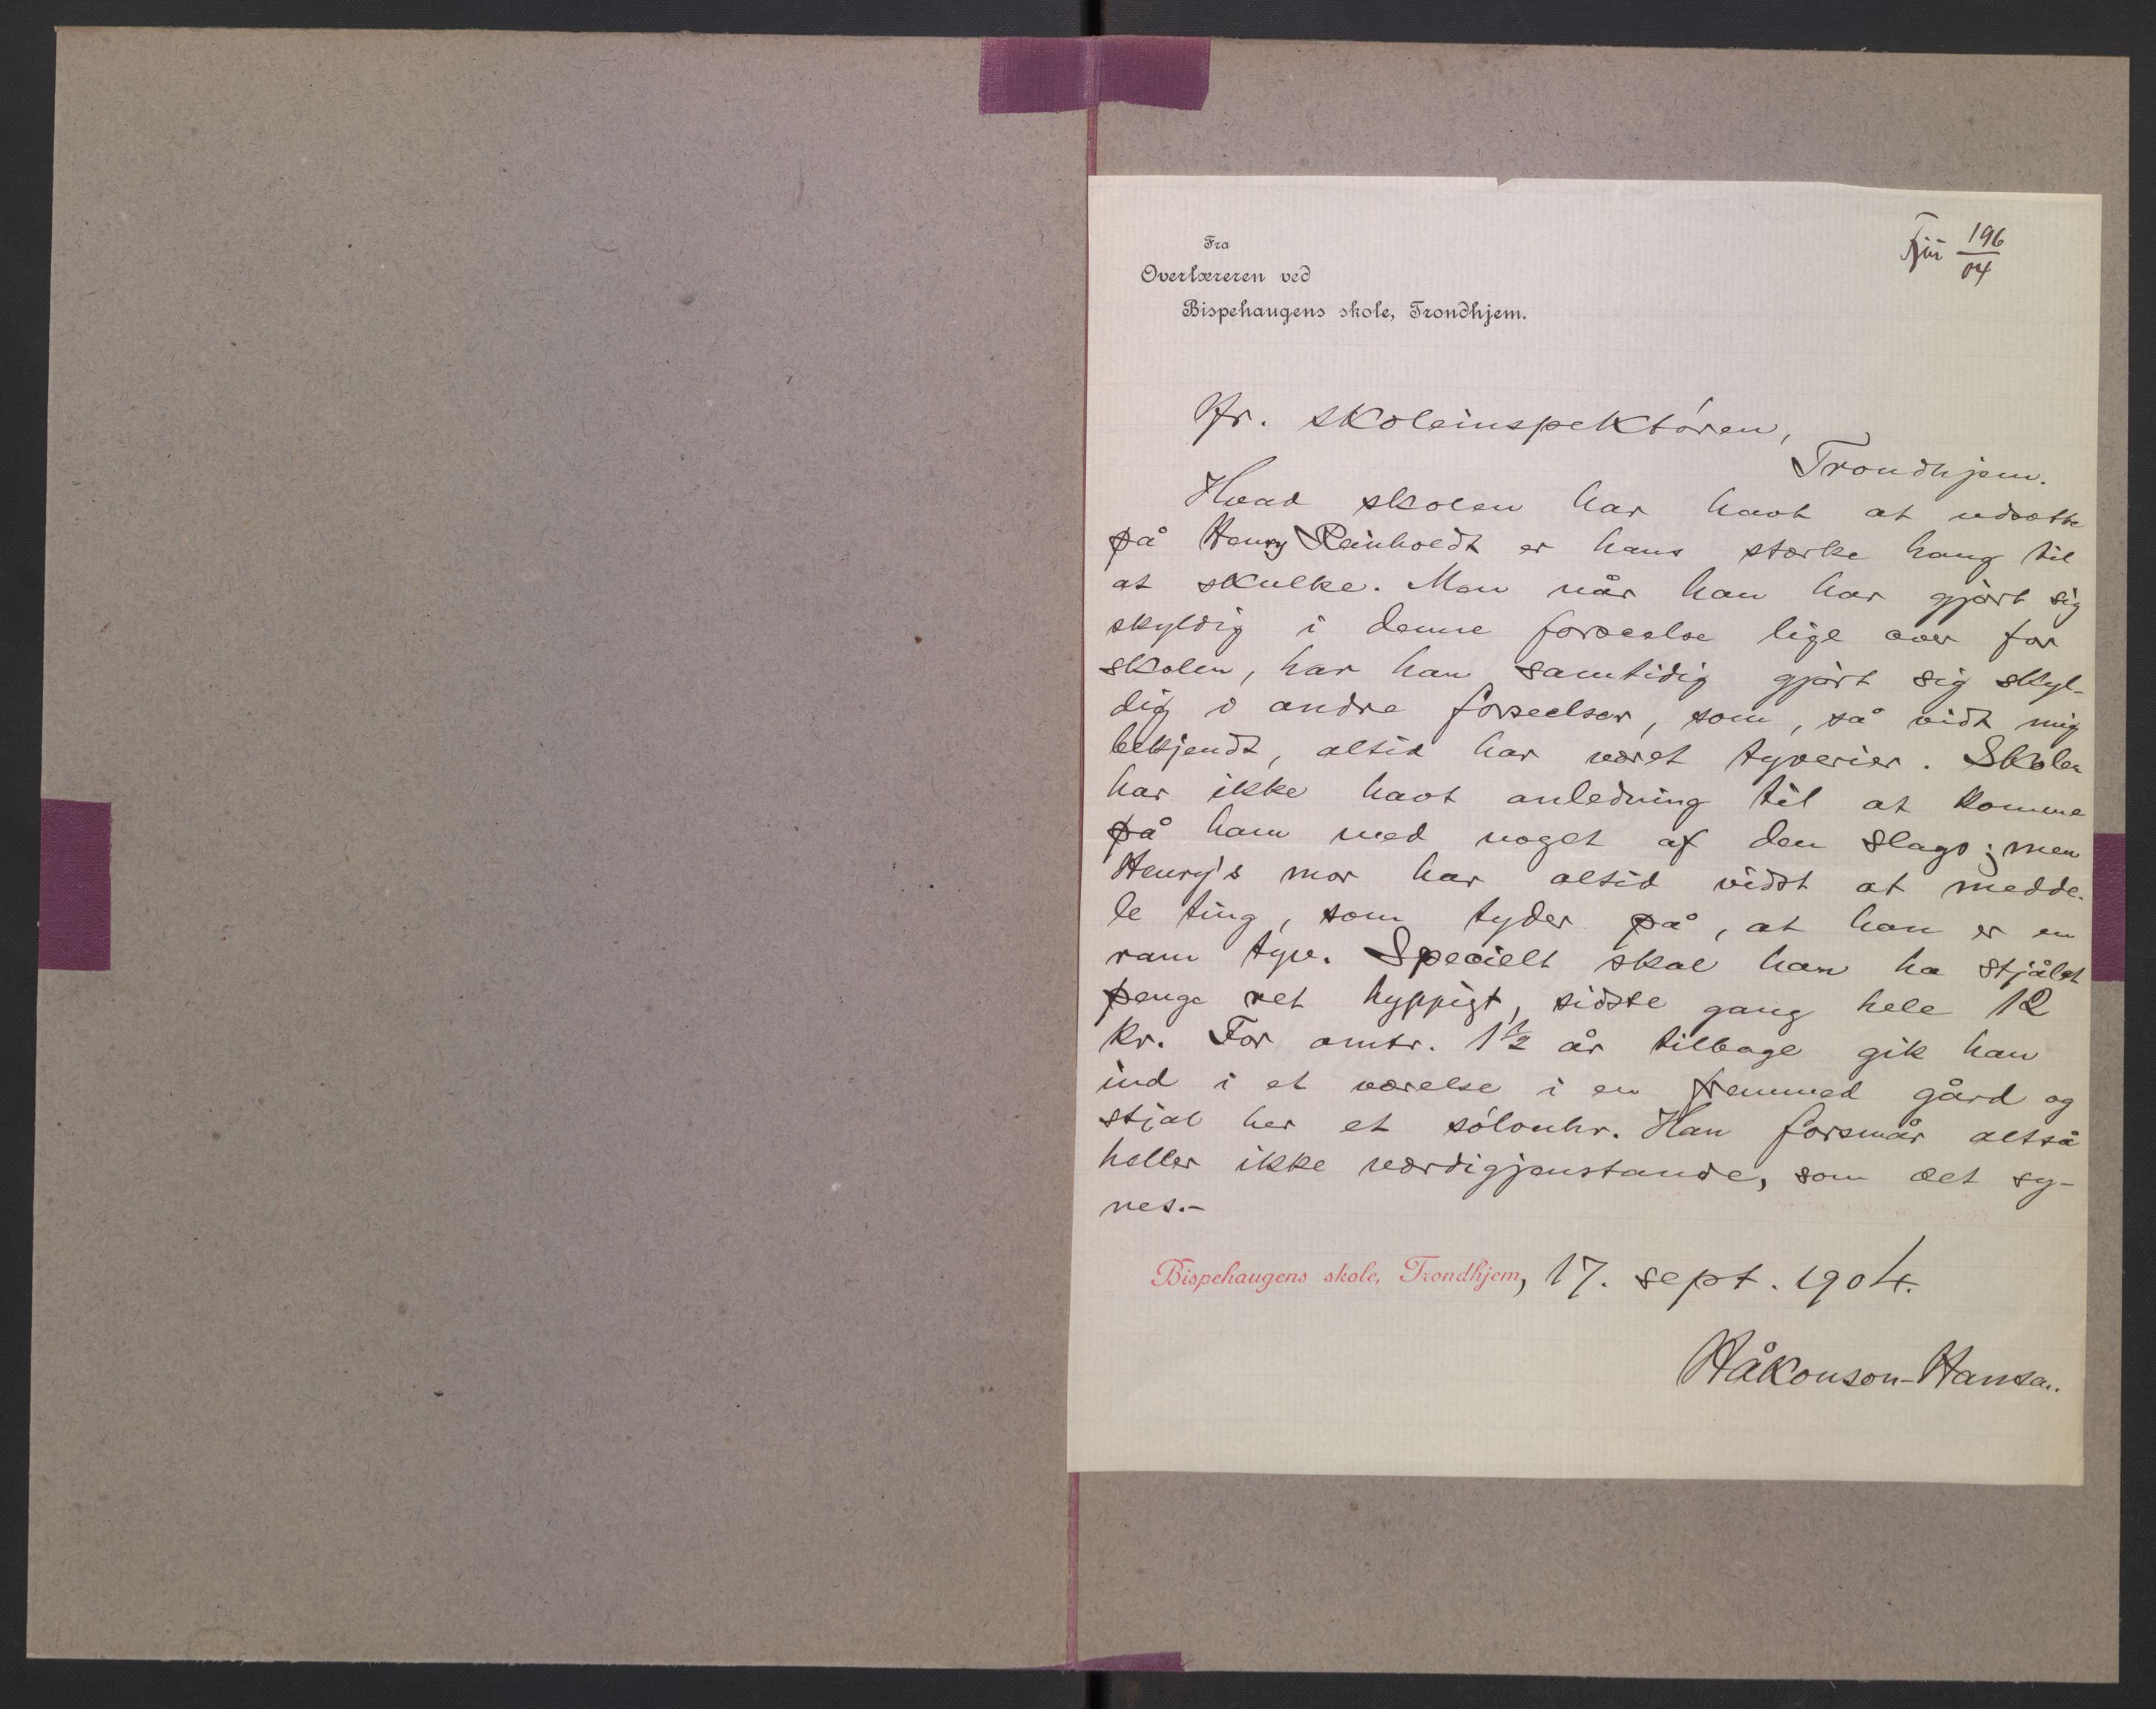 196
04
Fra
Overlæreren ved
Bispehaugens skole, Trondhjem.
Hr. skoleinspektøren,
Trondhjem.
Hvad skolen har havt at udsætte
på Henry Reinholdt er hans stærke hang til
at skulke. Men når han har gjørt sig
skyldig i denne forseelse lige over for
skolen, har han samtidig gjørt sig skyl-
dig i andre forseelser, som, så vidt mig
bekjendt, altid har været tyverier. Skolen
har ikke havt anledning til at komme
på ham med noget af den slags; men
Henry's mor har altid vidst at medde-
le ting, som tyder på, at han er en
ram tyv. Specielt skal han ha stjålet
penge ret hyppigt, sidste gang hele 12
kr. For omtr. 1½ år tilbage gik han
ind i et værelse i en fremmed gård og
stjal her et sølvuhr. Han forsmår altså
heller ikke værdigjenstande, som det sy-
nes.-
Bispehaugens skole, Trondhjem, 17. sept. 1904.
Håkonson-Hansen.